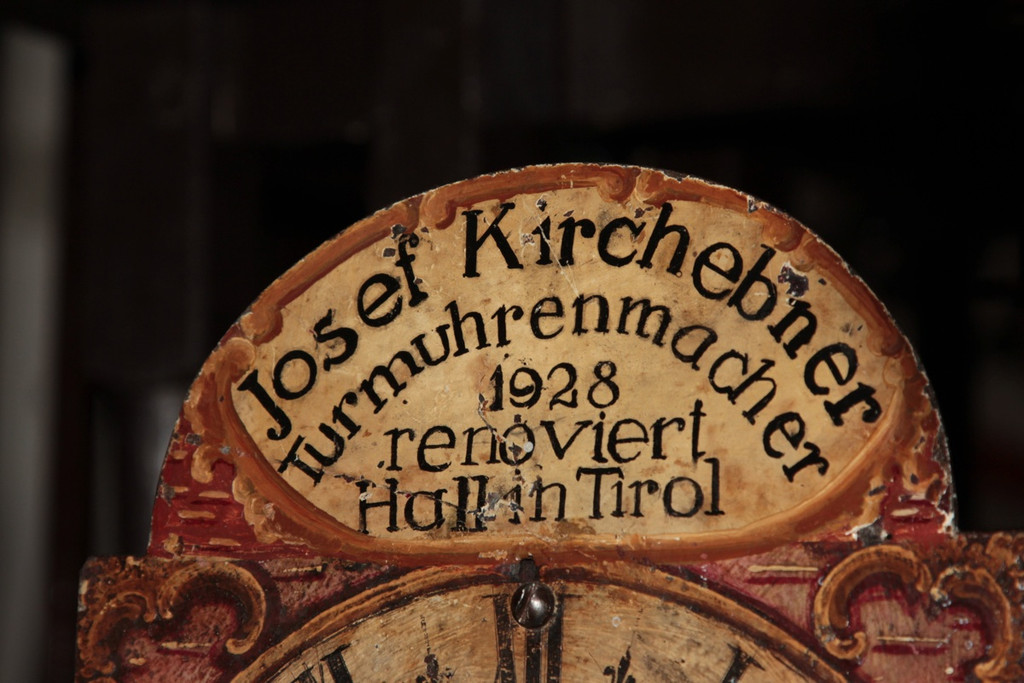 Josef Kirchebner
Turmuhrenmacher
1928
renoviert
Hall in Tirol